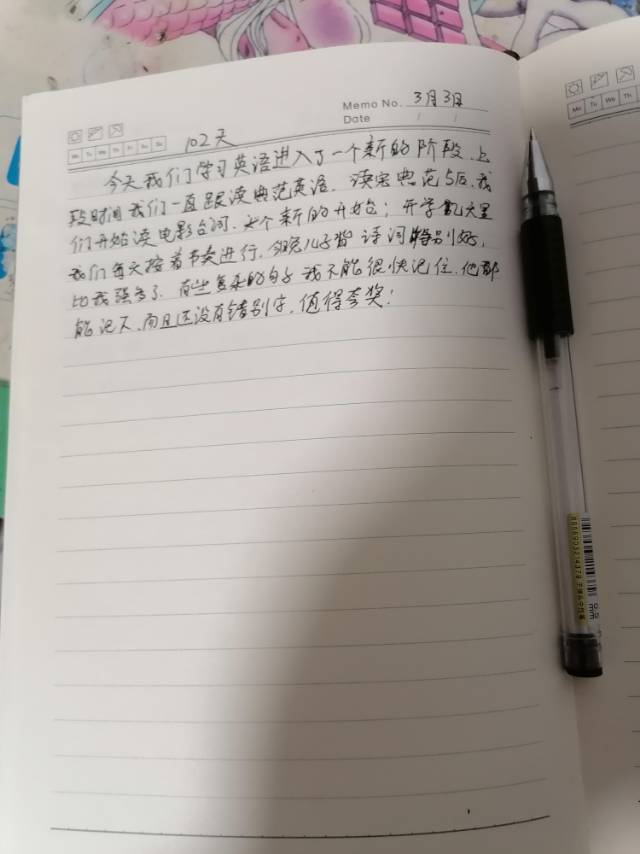 Memo No. 3月3日
Date / /
Mo Tu We Th Fr Sa Su
102天
今天我们学习英语进入了一个新的阶段,上
段时间我们一直跟读典范英语,读完典范5后,我
们开始读电影台词,是个新的开始;开学几天里
我们每天按着节奏进行,今晚儿子背诗词特别好,
比我强多了,有些复杂的句子我不能很快记住,他都
能记下,而且还没有错别字,值得夸奖!
Mo Tu We Th